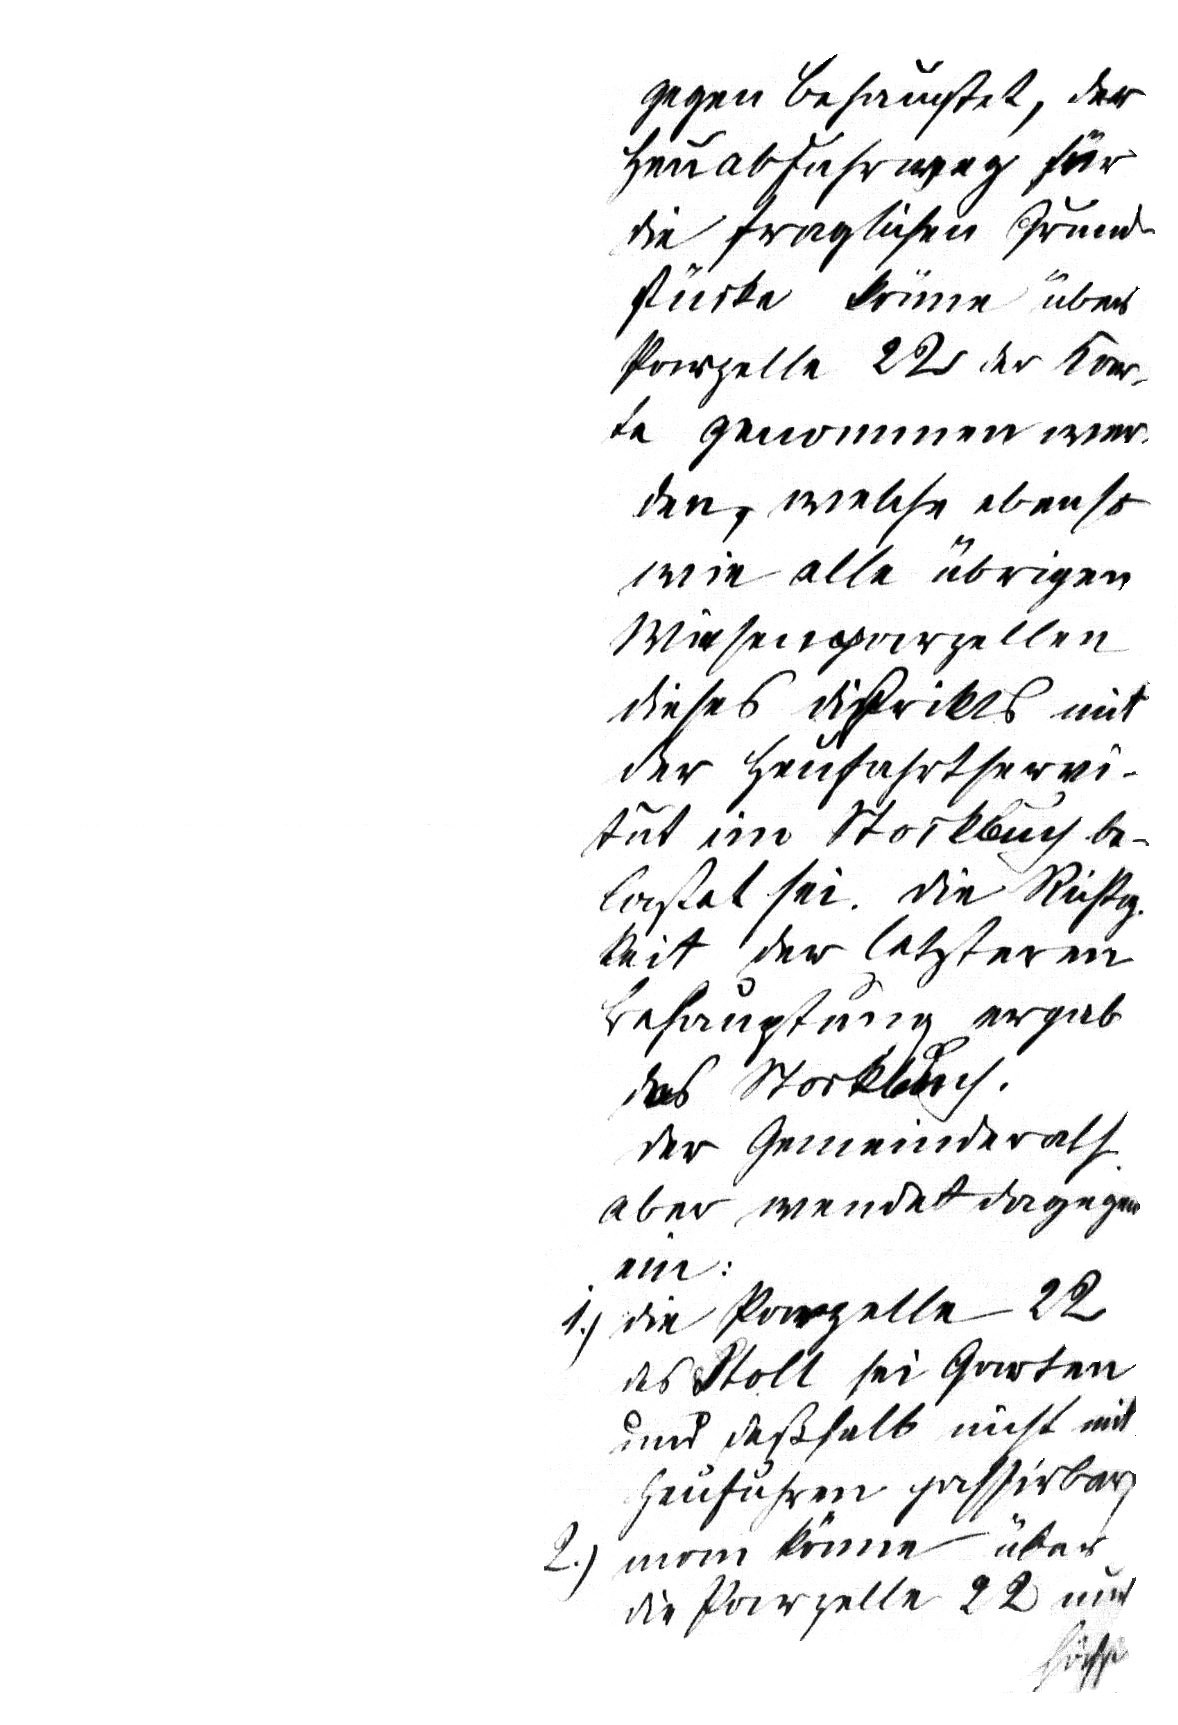 gegen behauptet, der
Heuabfuhrweg für
die fraglichen Grund-
stücke könne über
Parzelle 22 der Kar-
te genommen wer-
den, welche ebenso
wie alle übrigen
Wiesenparzellen
dieses Distrikts mit
der Heufahrtservi-
tut im Stockbuch be-
lastet sei. Die Richtig-
keit der letzteren
Behauptung ergab
das Stockbuch.
Der Gemeinderath
aber wendet dagegen
ein:
1.) die Parzelle 22
des Stoll sei Garten
und deßhalb nicht mit
Heufuhren passirbar,
2.) man könne über
die Parzelle 22 nur